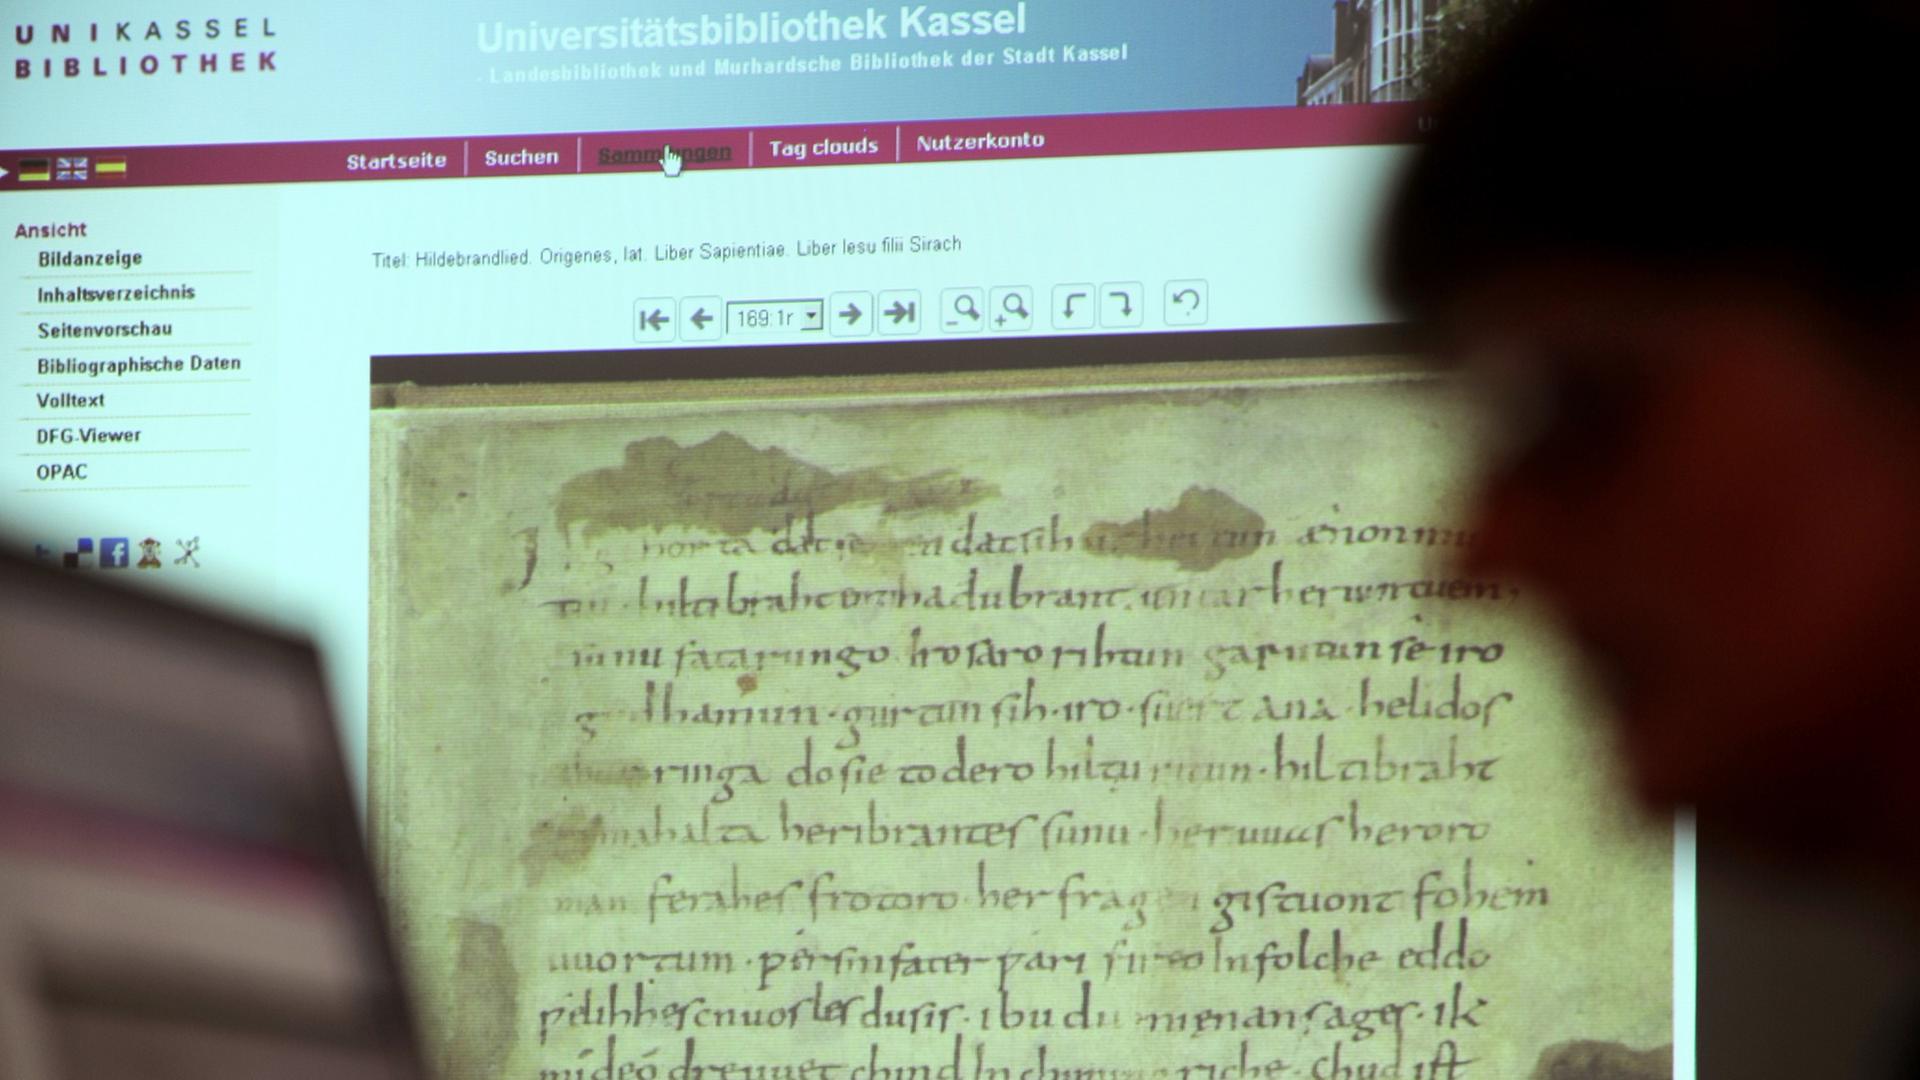 UNIKASSEL
BIBLIOTHEK
Universitätsbibliothek Kassel
- Landesbibliothek und Murhardsche Bibliothek der Stadt Kassel
Startseite
Suchen
Sammlungen
Tag clouds
Nutzerkonto
Ansicht
Bildanzeige
Inhaltsverzeichnis
Seitenvorschau
Bibliographische Daten
Volltext
DFG-Viewer
OPAC
Titel: Hildebrandlied. Origenes, lat. Liber Sapientiae. Liber Iesu filii Sirach
169:1r
dat sih
hiltibraht hadubrant
sunufatarungo iro saro rihtun garutun se iro
gudhamun · gurtun sih · iro · suert ana · helidos
ringa do sie to dero hiltu · hiltibraht
heribrantes sunu · her uuas heroro
ferahes frotoro · her fragen gistuont fohem
uuortum · fater in folche eddo
du sis · ibu du mi enan sages · ik
chind In riche · chud ist